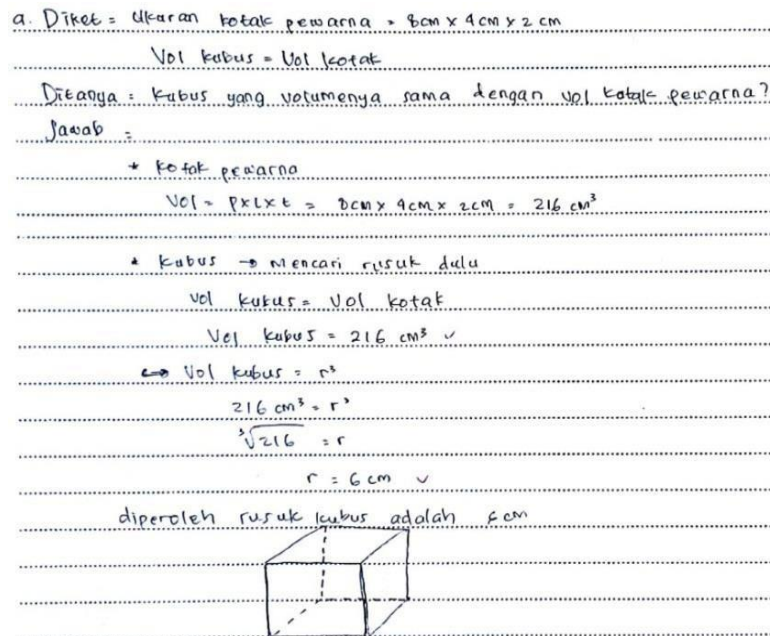 a. Diket = Ukuran kotak pewarna = 8cm x 4cm x 2 cm
Vol kubus = Vol kotak
Ditanya = Kubus yang volumenya sama dengan vol kotak pewarna?
Jawab =
* kotak pewarna
Vol = p x l x t = 8cm x 4cm x 2cm = 216 cm³
* Kubus → Mencari rusuk dulu
Vol kubus = Vol kotak
Vol kubus = 216 cm³ ✓
↔ Vol kubus = r³
216 cm³ = r³
∛216 = r
r = 6 cm ✓
diperoleh rusuk kubus adalah 6 cm